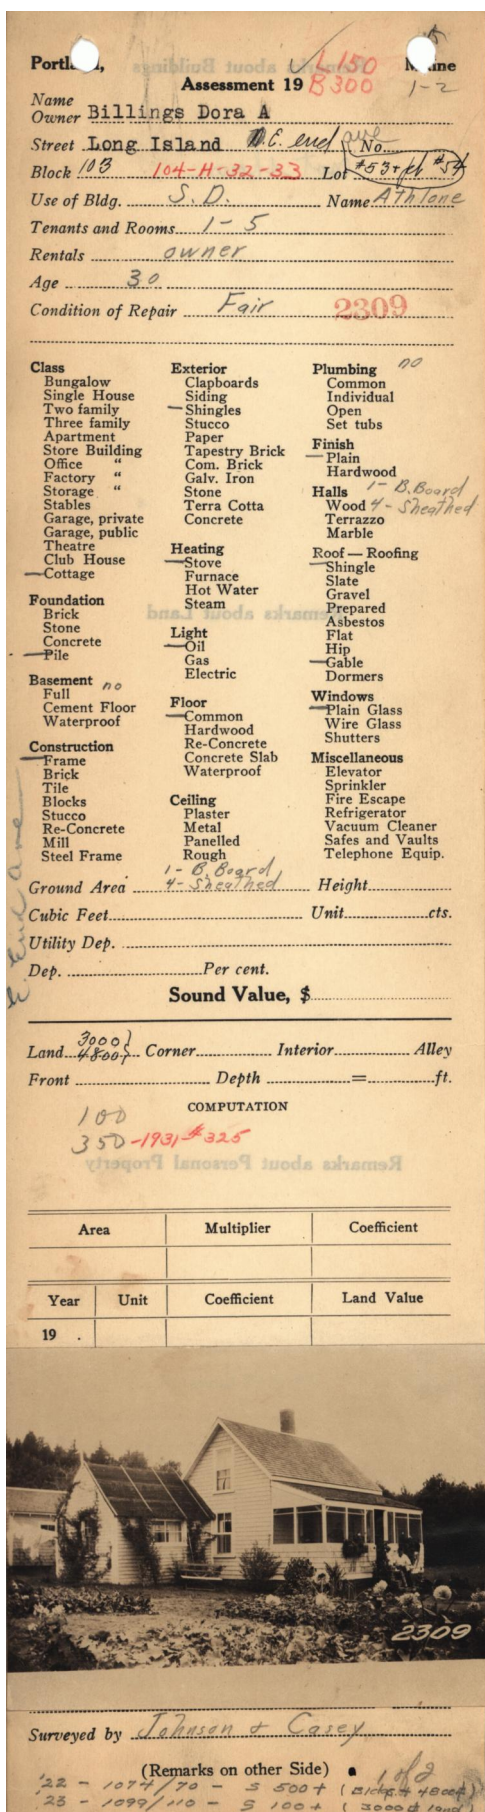 Portland, Maine
Remarks about Buildings
L 150
Assessment 19 B 300 1-2
Name
Owner Billings Dora A
Street Long Island N.E. end ave No.
Block 103 104-H-32-33 Lot #53 + pt #54
Use of Bldg. S.D. Name Athlone
Tenants and Rooms 1-5
Rentals owner
Age 30
Condition of Repair Fair 2309
Class
Bungalow
Single House
Two family
Three family
Apartment
Store Building
Office "
Factory "
Storage "
Stables
Garage, private
Garage, public
Theatre
Club House
Cottage
Foundation
Brick
Stone
Concrete
Pile
Basement no
Full
Cement Floor
Waterproof
Construction
Frame
Brick
Tile
Blocks
Stucco
Re-Concrete
Mill
Steel Frame
Exterior
Clapboards
Siding
Shingles
Stucco
Paper
Tapestry Brick
Com. Brick
Galv. Iron
Stone
Terra Cotta
Concrete
Heating
Stove
Furnace
Hot Water
Steam
Remarks about Land
Light
Oil
Gas
Electric
Floor
Common
Hardwood
Re-Concrete
Concrete Slab
Waterproof
Ceiling
Plaster
Metal
Panelled
Rough
1- B. Board
4- Sheathed
Plumbing no
Common
Individual
Open
Set tubs
Finish
Plain
Hardwood
Halls 1- B. Board
Wood 4- Sheathed
Terrazzo
Marble
Roof — Roofing
Shingle
Slate
Gravel
Prepared
Asbestos
Flat
Hip
Gable
Dormers
Windows
Plain Glass
Wire Glass
Shutters
Miscellaneous
Elevator
Sprinkler
Fire Escape
Refrigerator
Vacuum Cleaner
Safes and Vaults
Telephone Equip.
Ground Area Height
Cubic Feet Unit cts.
Utility Dep.
Dep. Per cent.
Sound Value, $
3000
Land 4800 Corner Interior Alley
Front Depth = ft.
COMPUTATION
100
350 -1931- $325
Remarks about Personal Property
Area Multiplier Coefficient
Year Unit Coefficient Land Value
19 .
2309
Surveyed by Johnson & Casey
(Remarks on other Side) 1 of 2
'22 - 1074/70 - S 500+ (Bldg + 4800
'23 - 1099/110 - S 100+ (3000